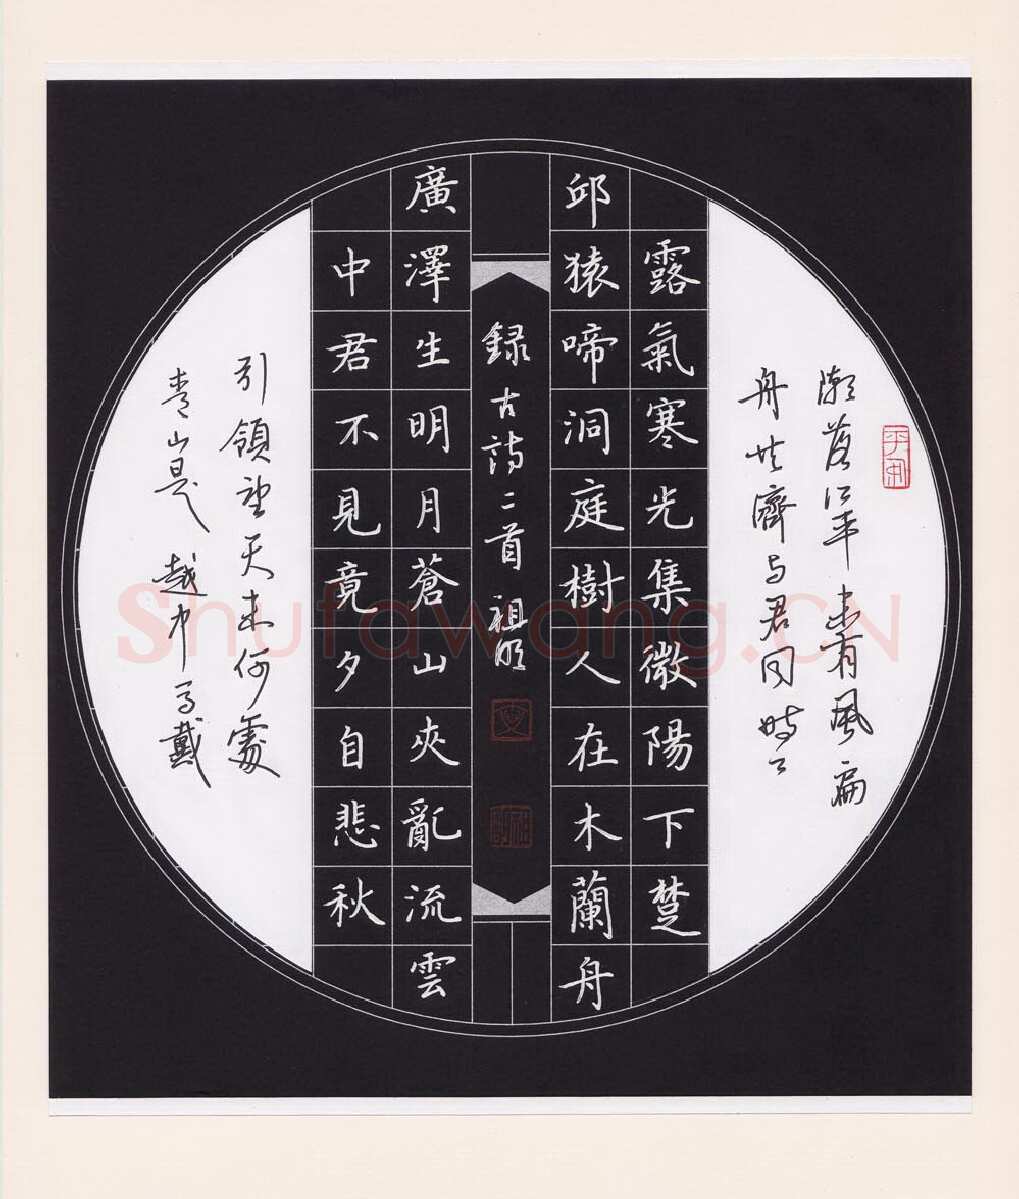 潮落江平未有風扁
舟共濟与君同時々
露氣寒光集微陽下楚
邱猿啼洞庭樹人在木蘭舟
録古詩二首 祖明
廣澤生明月蒼山夾亂流雲
中君不見竟夕自悲秋
引領望天末何處
青山是越中 马戴
平安
Shufawang.CN